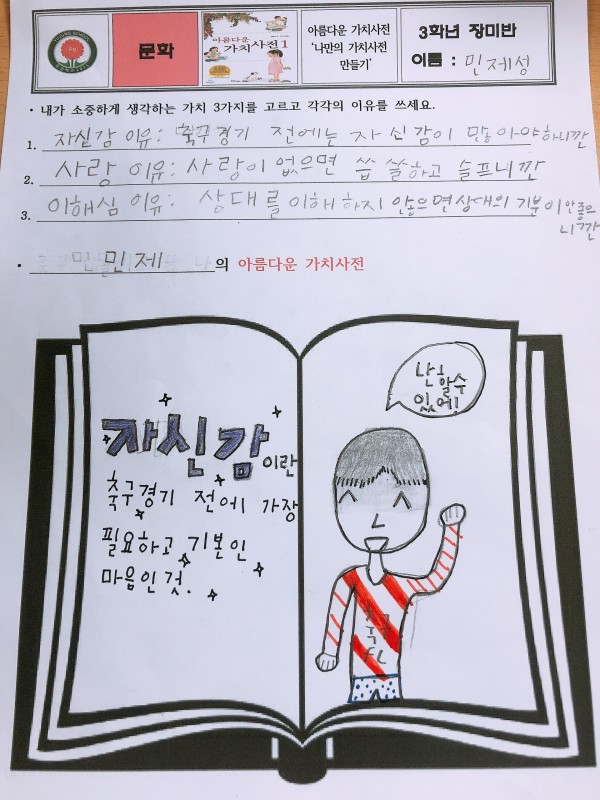 문화
아름다운
가치사전 1
아름다운 가치사전
'나만의 가치사전
만들기'
3학년 장미반
이름 : 민제성
• 내가 소중하게 생각하는 가치 3가지를 고르고 각각의 이유를 쓰세요.
1. 자실감 이유: 축구경기 전에는 자신감이 많아야하니깐
2. 사랑 이유: 사랑이 없으면 씁쓸하고 슬프니깐
3. 이해심 이유: 상대를 이해하지 않으면 상대의 기분이 안좋으
니깐
• 민민제의 아름다운 가치사전
난 할수
있어!
자신감이란
축구경기 전에 가장
필요하고 기본인
마음인 것.
축구